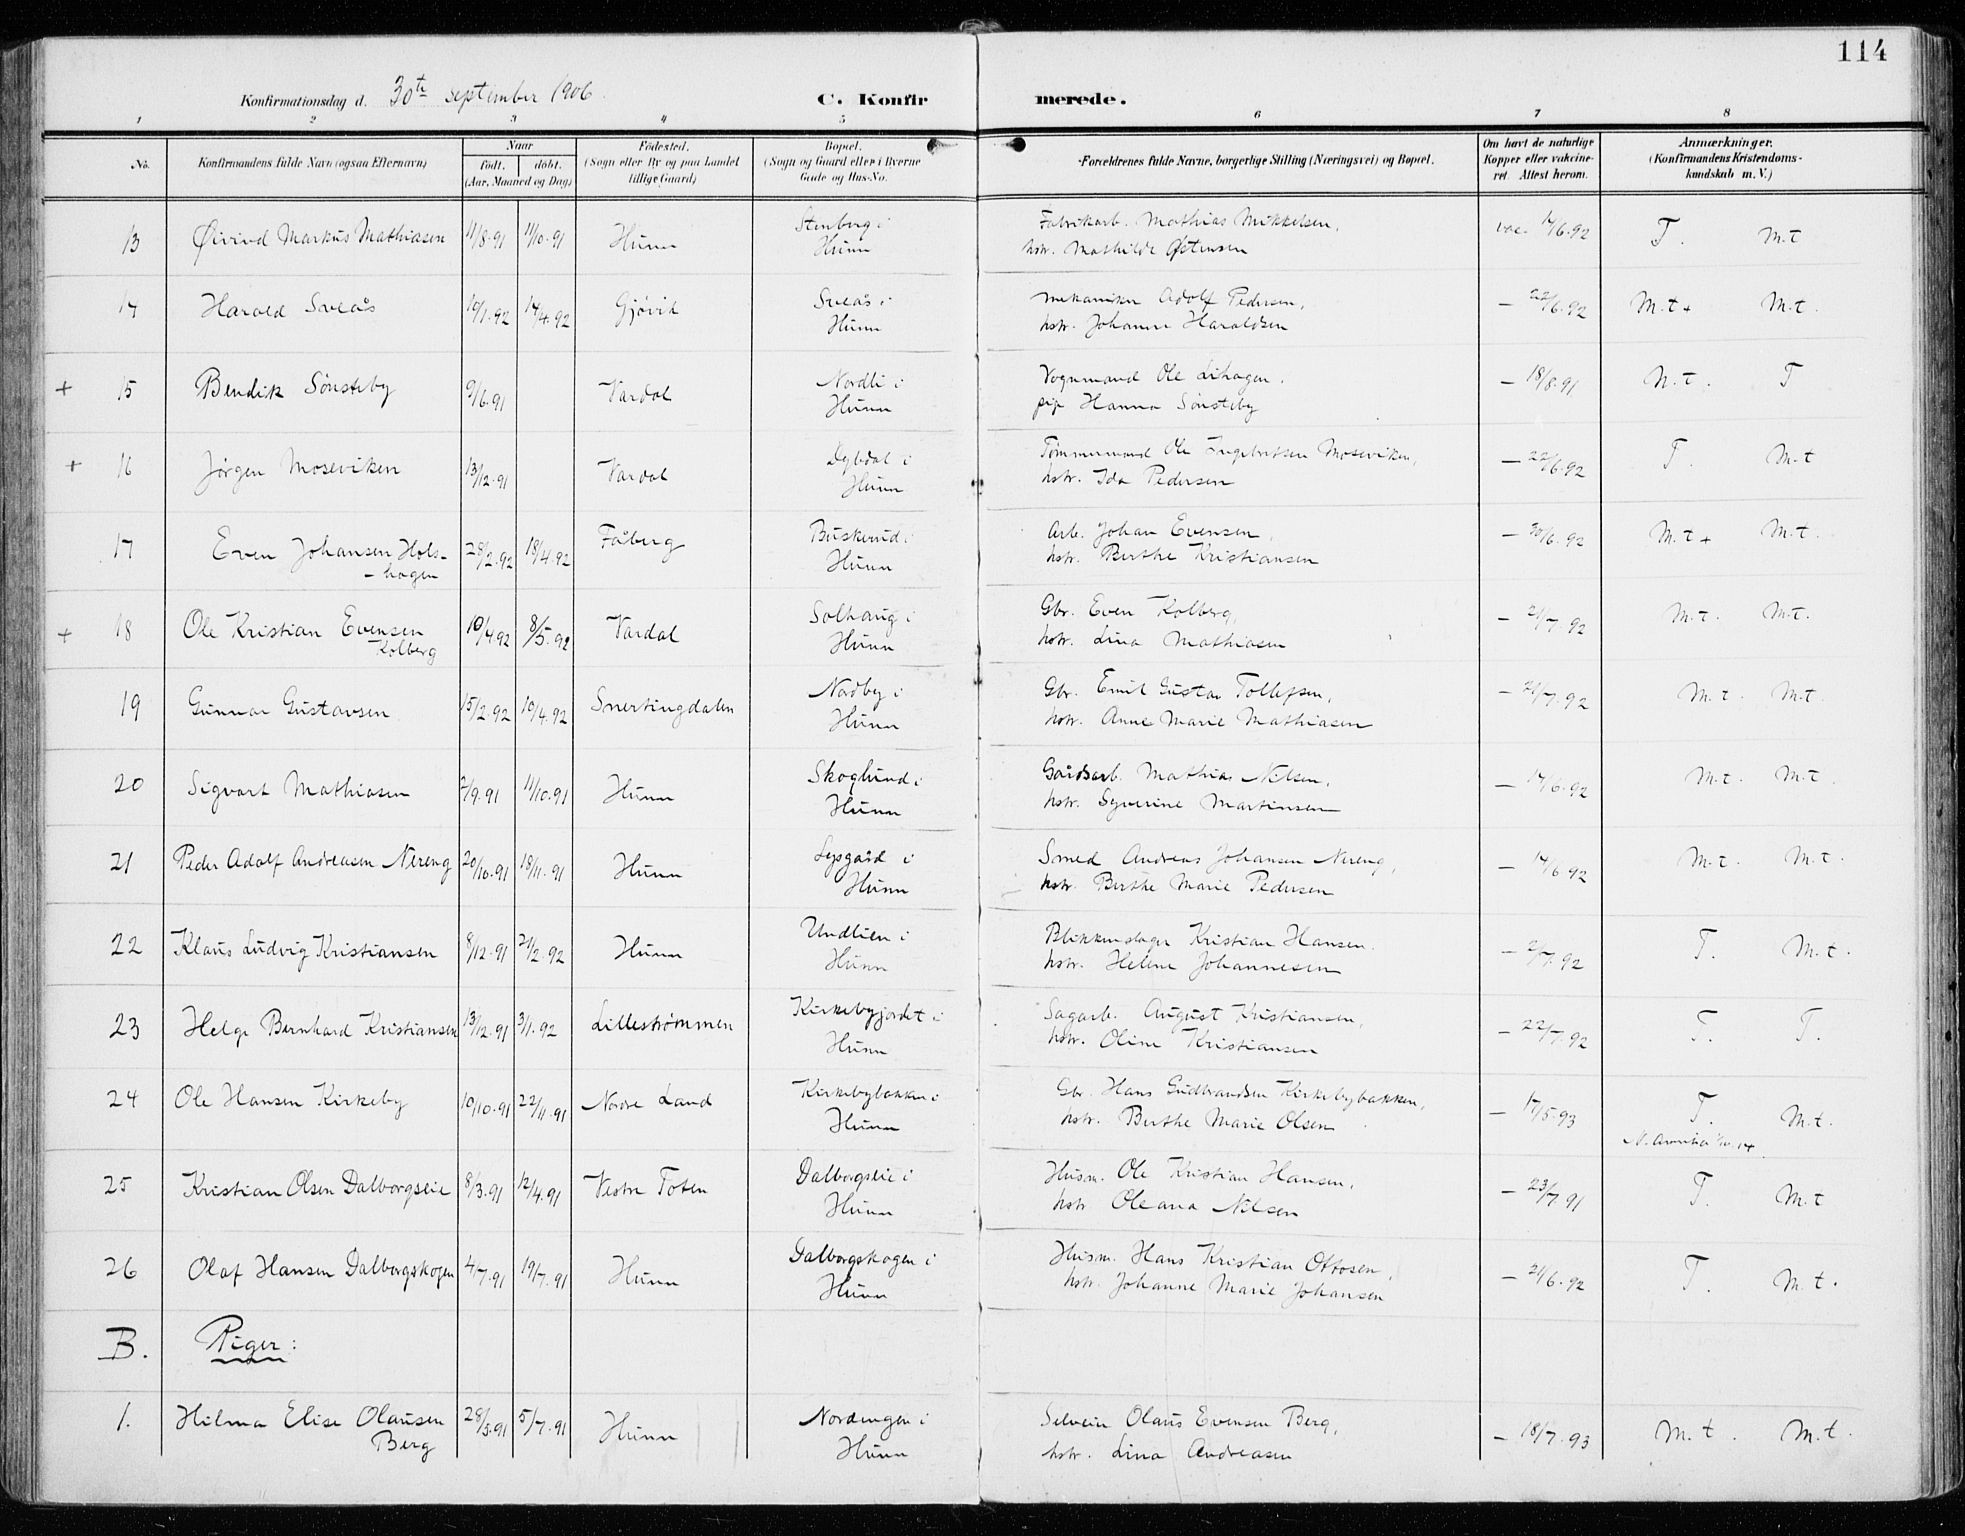 114
Konfirmationsdag d. 30te september 1906. C. Konfirmerede.
1 2 3 4 5 6 7 8
No. Konfirmandens fulde Navn (ogsaa Efternavn) Naar født. døbt. (Aar, Maaned og Dag) Fødested. (Sogn eller By og paa Landet tillige Gaard) Bopæl. (Sogn og Gaard eller i Byerne Gade og Hus-No. Forældrenes fulde Navne, borgerlige Stilling (Næringsvei) og Bopæl. Om havt de naturlige Kopper eller vakcineret. Attest herom. Anmærkninger. (Konfirmandens Kristendomskundskab m. V.)
13 Øivind Markus Mathiasen 11/8.91 11/10.91 Hunn Stenberg i Fabrikarb. Mathias Mikkelsen, vac. 14/6.92 T. M.t
Hunn hstr. Mathilde Østensen
14 Harald Sveås 19/1.92 14/4.92 Gjøvik Sveås i mekaniker Adolf Pedersen, — 22/6.92 M.t+ M.t.
Hunn hstr. Johanne Haraldsen
+ 15 Bendik Sønsteby 9/6.91 Vardal Nordli i Vognmand Ole Lihagen, — 18/8.91 M.t. T
Hunn pip. Hanna Sønsteby
+ 16 Jørgen Moseviken 13/12.91 Vardal Dybdal i Tømmermand Ole Ingebretsen Moseviken, — 22/6.92 T. M.t
Hunn hstr. Ida Pedersen
17 Even Johansen Hols- 28/2.92 18/4.92 Fåberg Buskerud i Arb. Johan Evensen, — 30/6.92 M.t+ M.t.
-hagen Hunn hstr. Berthe Kristiansen
+ 18 Ole Kristian Evensen 10/4.92 8/5.92 Vardal Solhaug i Gbr. Even Kolberg, — 21/7.92 M.t. M.t.
Kolberg Hunn hstr. Lina Mathiasen
19 Gunnar Gustavsen 15/2.92 10/4.92 Snertingdalen Nordby i Gbr. Emil Gustav Tollefsen, — 21/7.92 M.t. M.t.
Hunn hstr. Anne Marie Mathiasen
20 Sigvart Mathiasen 2/9.91 11/10.91 Hunn Skoglund i Gårdsarb. Mathias Nilsen, — 14/6.92 M.t. M.t.
Hunn hstr. Syverine Martinsen
21 Peder Adolf Andreasen Nereng 20/10.91 18/11.91 Hunn Lysgård i Smed Andreas Johansen Nereng, — 14/6.92 M.t. M.t.
Hunn hstr. Berthe Marie Pedersen
22 Klaus Ludvig Kristiansen 8/12.91 21/2.92 Hunn Undlien i Blikkenslager Kristian Hansen. — 2/7.92 T. M.t.
Hunn hstr. Helene Johannesen
23 Helge Bernhard Kristiansen 13/12.91 3/1.92 Lillestrømmen Kirkebyjordet i Sagarb. August Kristiansen, — 22/7.92 T. T.
Hunn hstr. Oline Kristiansen
24 Ole Hansen Kirkeby 10/10.91 22/11.91 Nordre Land Kirkebybakken i Gbr. Hans Gudbrandsen Kirkebybakken, — 17/5.93 T. M.t.
Hunn hstr. Berthe Marie Olsen
25 Kristian Olsen Dalborgseie 8/3.91 12/4.91 Vestre Toten Dalborgseie i Husm. Ole Kristian Hansen, — 23/7.91 T. M.t
Hunn hstr Oleana Nilsen
26 Olaf Hansen Dalborgskogen 4/7.91 19/7.91 Hunn Dalborgskogen i Husm. Hans Kristian Ottosen, — 21/6.92 T. M.t.
Hunn hstr. Johanne Marie Johansen
B. Piger:
1. Hilma Elise Olausen 28/5.91 5/7.91 Hunn Nordengen i Selveier Olaus Evensen Berg, — 18/7.93 M.t. M.t.
Berg Hunn hstr. Lina Andreasen